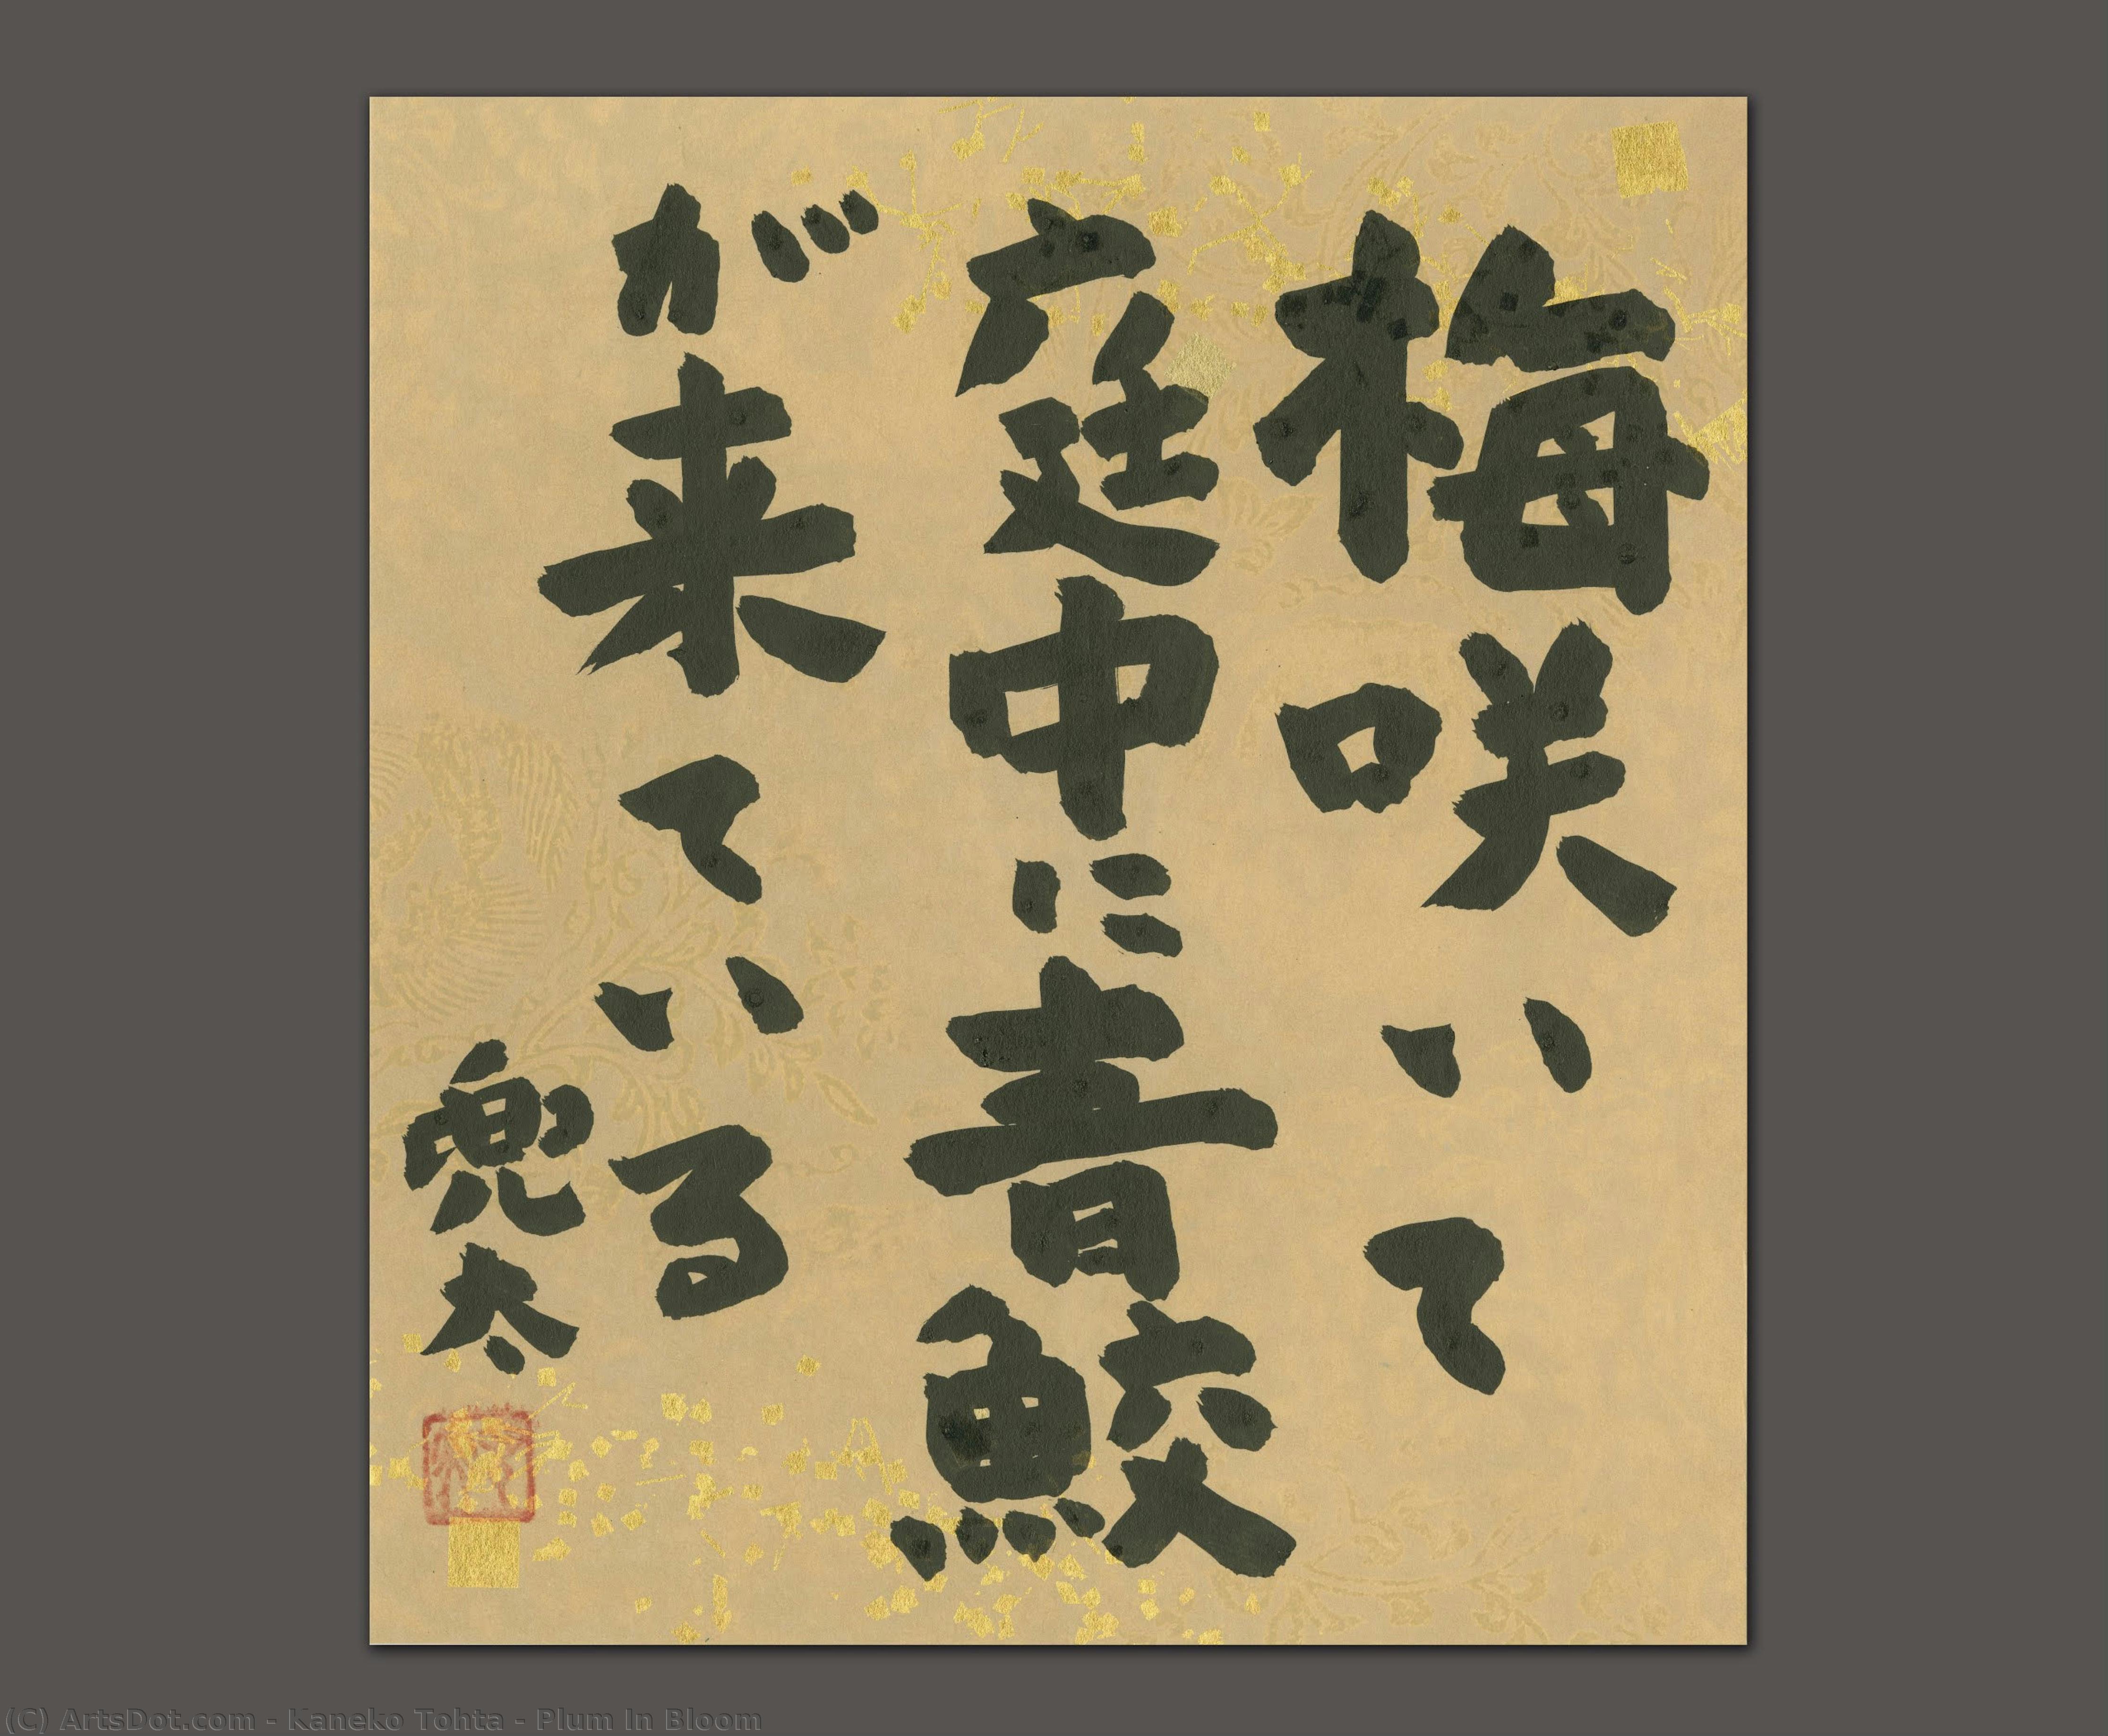 梅咲いて
庭中に青鮫
が来ている
兜太
(C) ArtsDot.com - Kaneko Tohta - Plum In Bloom